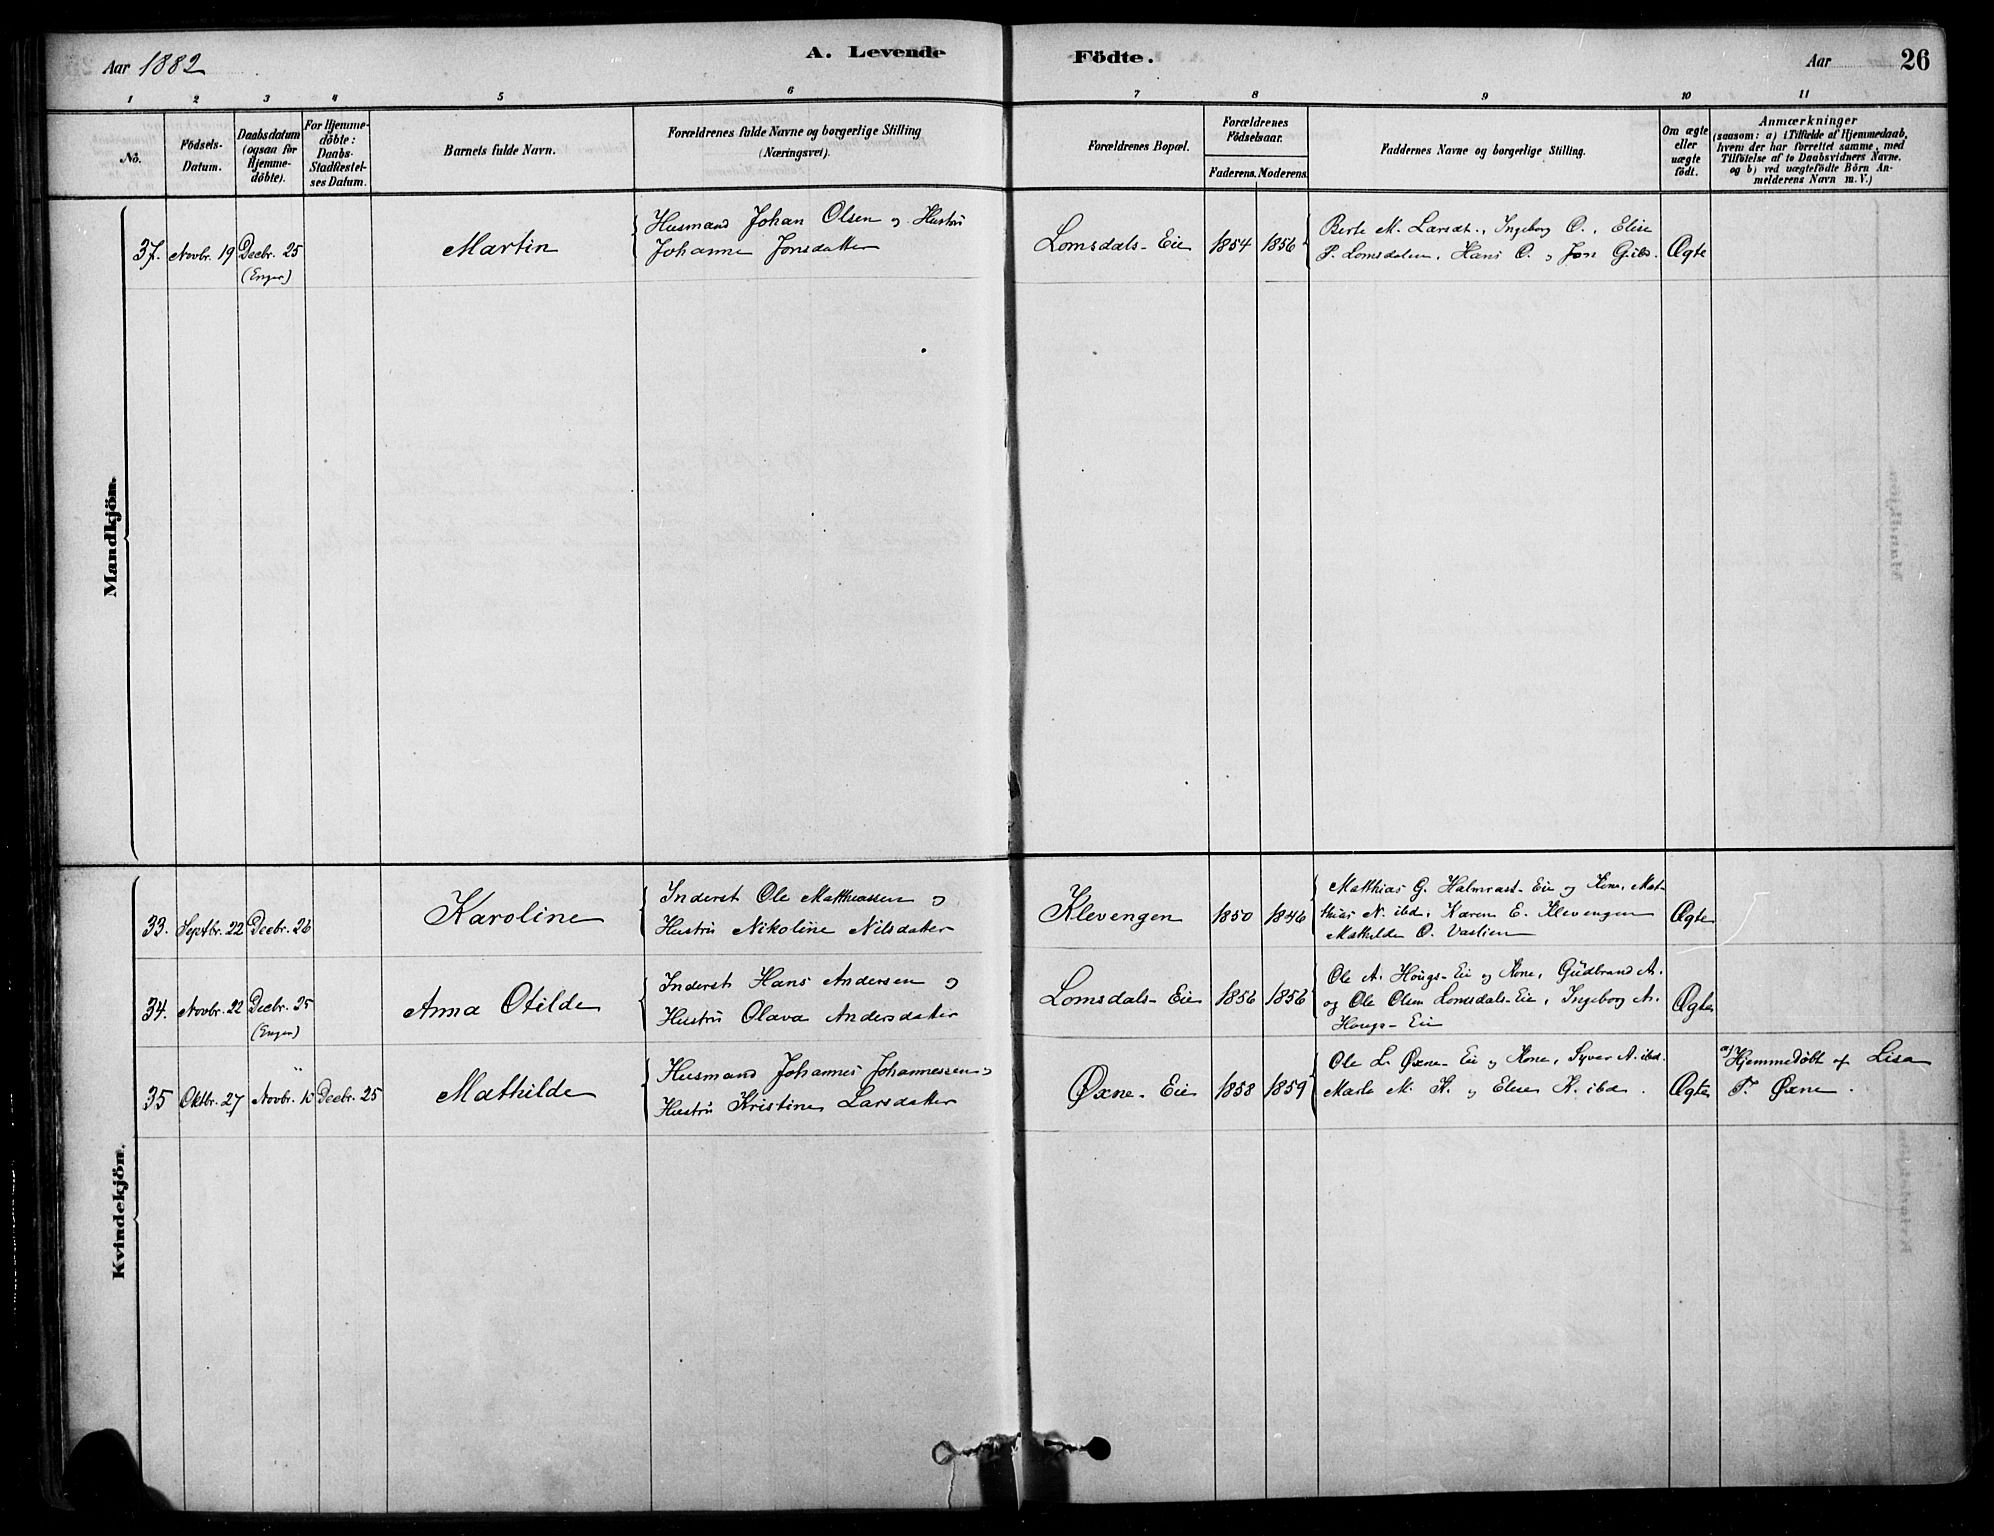 Aar 1882
A. Levende Födte.
Aar
26
1 2 3 4 5 6 7 8 9 10 11
No.
Födsels-
Datum.
Daabsdatum
(ogsaa for
Hjemme-
döbte).
For Hjemme-
döbte:
Daabs-
Stadfæstel-
ses Datum.
Barnets fulde Navn.
Forældrenes fulde Navne og borgerlige Stilling
(Næringsvei).
Forældrenes Bopæl.
Forældrenes
Födselsaar.
Faderens. Moderens.
Faddernes Navne og borgerlige Stilling.
Om ægte
eller
uægte
födt.
Anmærkninger
(saasom: a) i Tilfælde af Hjemmedaab,
hvem der har forrettet samme, med
Tilföielse af to Daabsvidners Navne,
og b) ved uægtefödte Börn An-
melderens Navn m. V.)
Mandkjön.
37. Novbr. 19 Decbr. 25
(Enger)
Martin
Husmand Johan Olsen og Hustru
Johanne Jonsdatter
Lomsdals-Eie 1854 1856
Berte M. Larsdt., Ingeborg O., Elise
P. Lomsdalen, Hans O. og Jon G. ibd.
Ægte
Kvindekjön.
33. Septbr. 22 Decbr. 26
Karoline
Inderst Ole Matthiassen og
Hustru Nikoline Nilsdatter
Klevengen 1850 1846
Matthias G. Halmrast-Eie og Kone, Mat-
thias N. ibd., Karen E. Klevengen
Mathilde O. Vastien
Ægte
34. Novbr. 22 Decbr. 25
(Enger)
Anna Otilde
Inderst Hans Andersen og
Hustru Olava Andersdatter
Lomsdals-Eie 1856 1856
Ole A. Hougs-Eie og Kone, Gudbrand A.
og Ole Olsen Lomsdals-Eie, Ingeborg A.
Hougs-Eie
Ægte
35 Oktbr. 27 Novbr. 10 Decbr. 25
Mathilde
Husmand Johannes Johannessen og
Hustru Kristine Larsdatter
Øxne-Eie 1858 1859
Ole L. Øxne-Eie og Kone, Syver A. ibd.
Marte M. K. og Elise K. ibd.
Ægte
a) Hjemmedöbt af Lisa
T. Øxne.